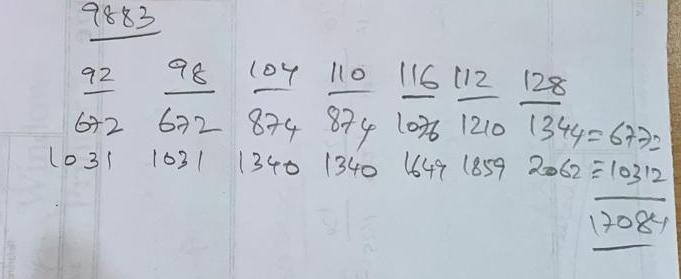 9883
92 98 104 110 116 112 128
672 672 874 874 1076 1210 1344 = 6772
1031 1031 1340 1340 1649 1859 2062 = 10312
17084